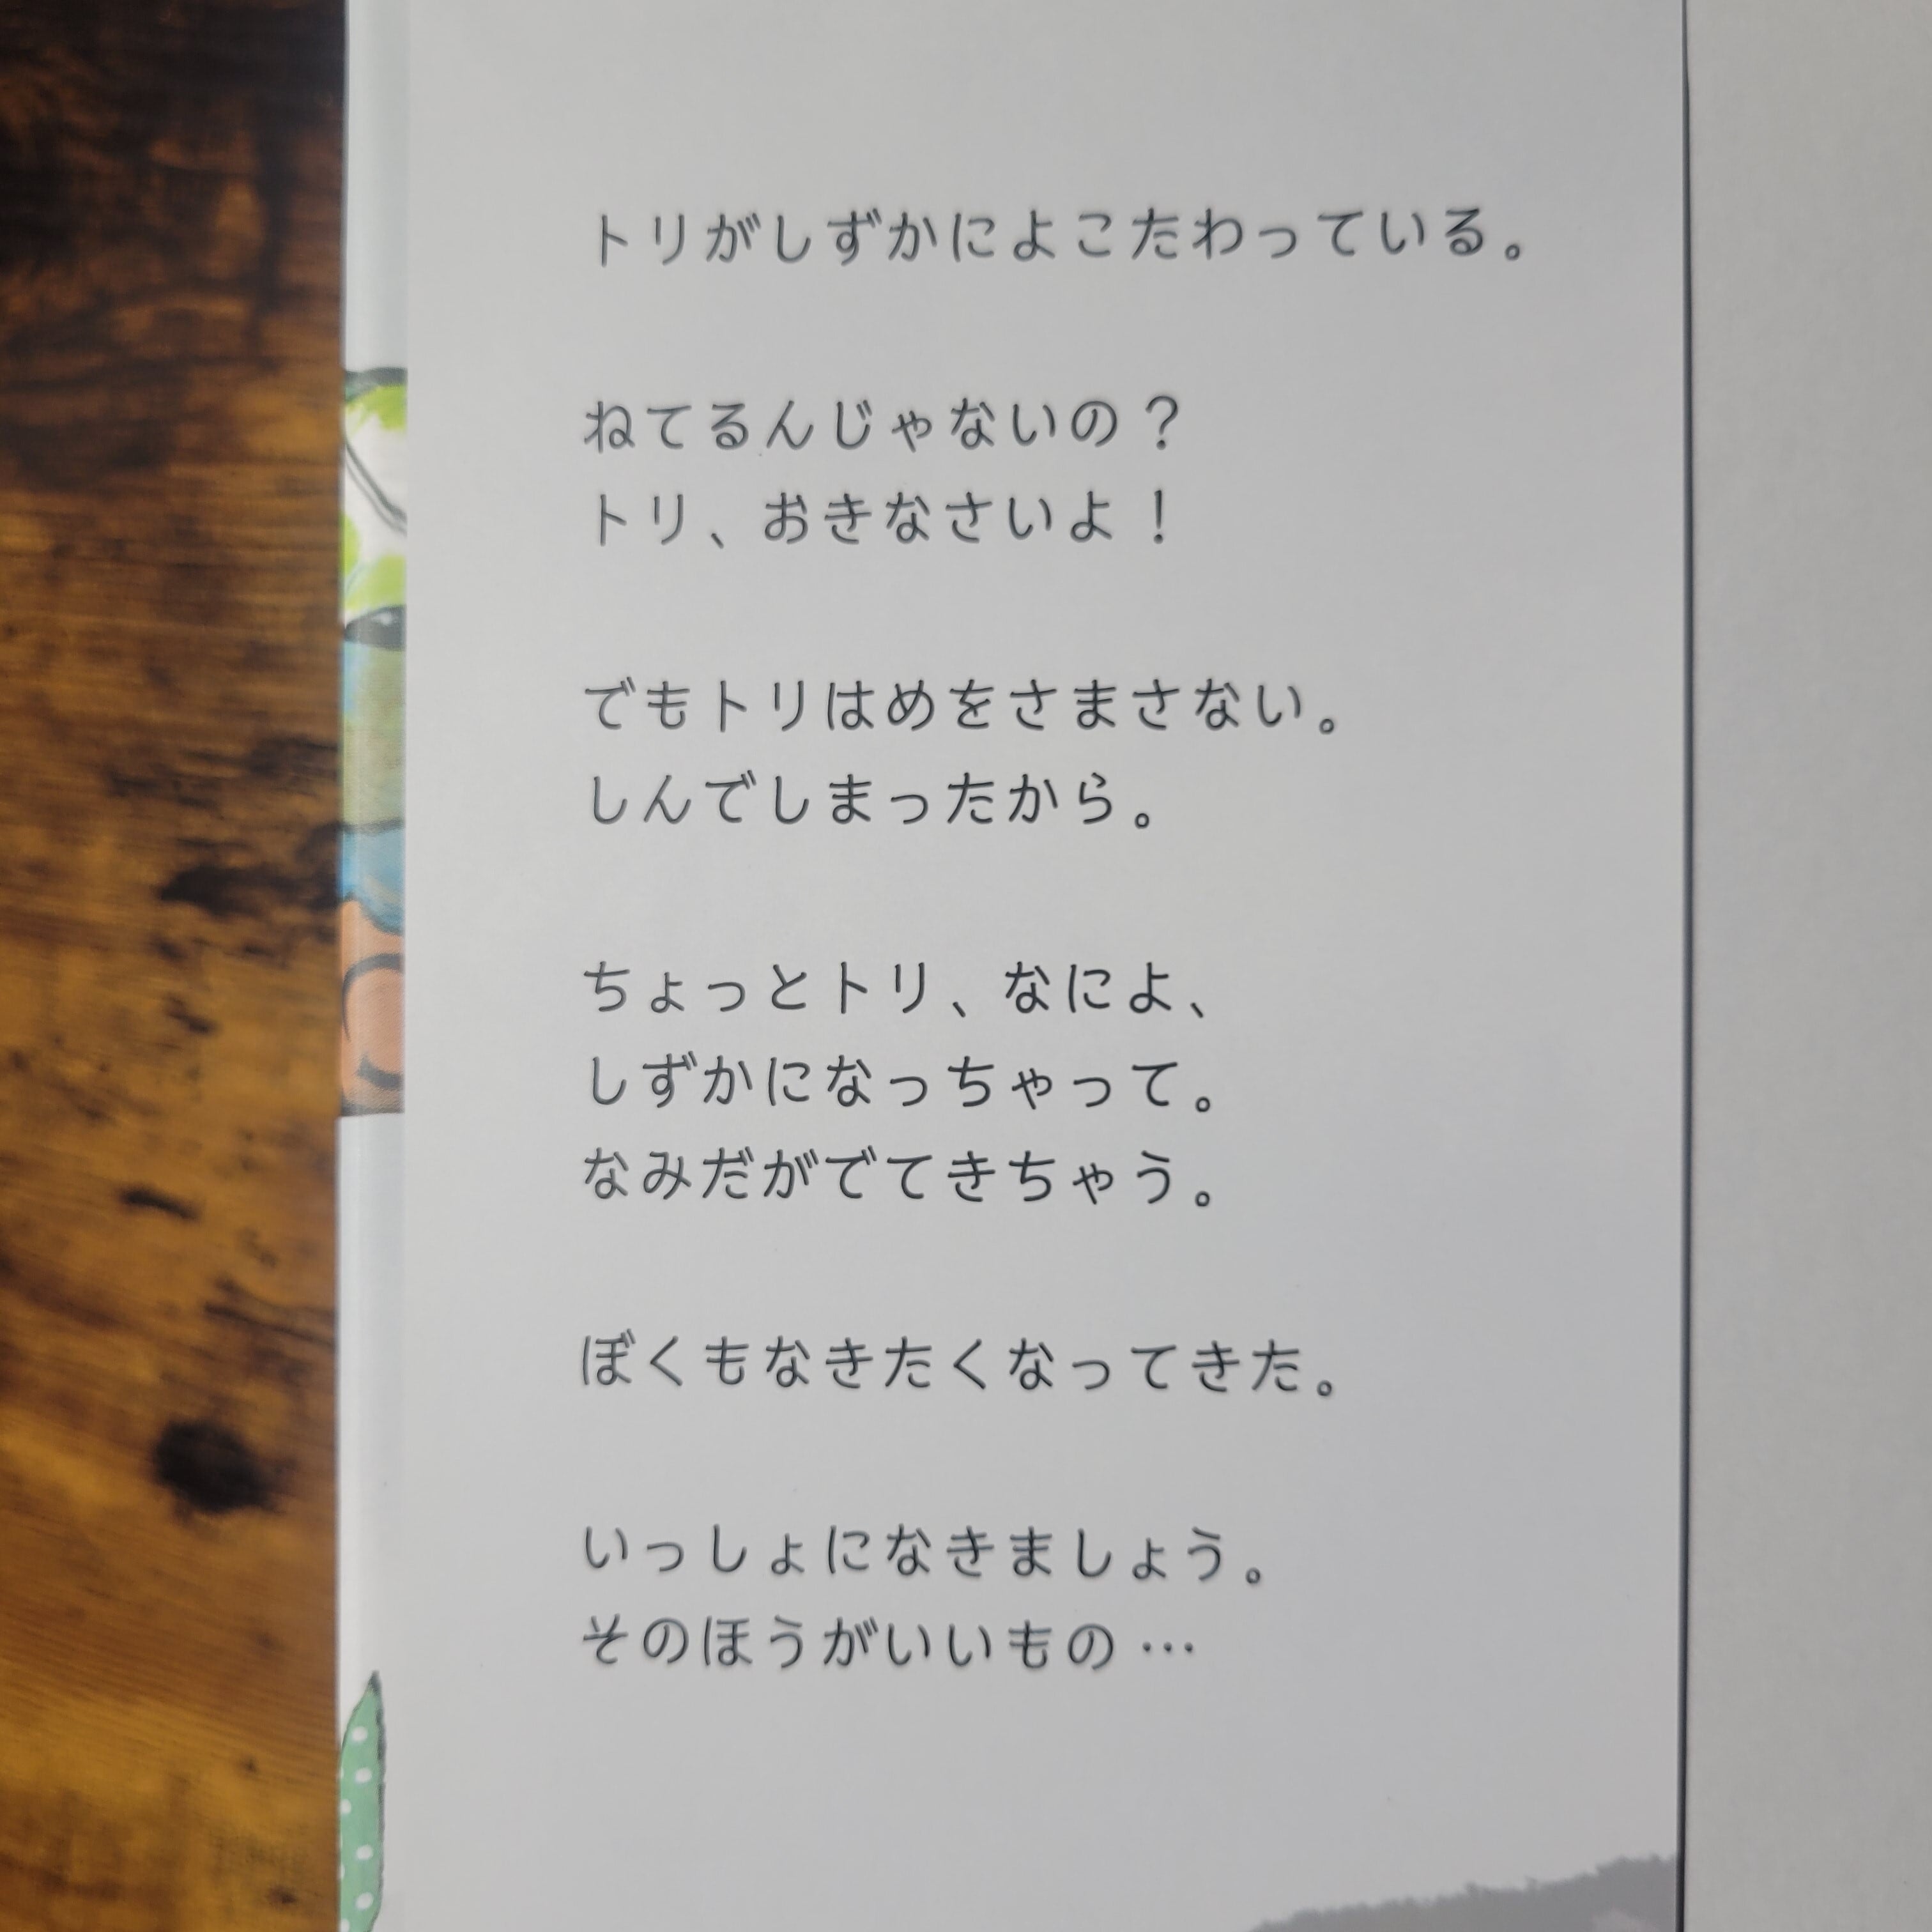 トリがしずかによこたわっている。
ねてるんじゃないの？
トリ、おきなさいよ！
でもトリはめをさまさない。
しんでしまったから。
ちょっとトリ、なによ、
しずかになっちゃって。
なみだがでてきちゃう。
ぼくもなきたくなってきた。
いっしょになきましょう。
そのほうがいいもの…